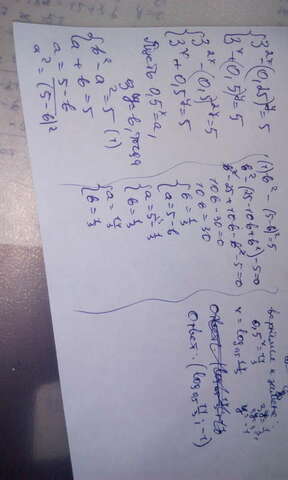 {3²ˣ-(0,25)ʸ=5
{3ˣ-(0,5)ʸ=5
{3²ˣ-(0,5)²ʸ=5
{3ˣ+0,5ʸ=5
Пусть 0,5ˣ=a,
3ʸ=b, тогда
{b²-a²=5 (1)
{a+b=5
a=5-b
a²=(5-b)²
(1) b²-(5-b)²=5
b²-(25-10b+b²)-5=0
b²-25+10b-b²-5=0
10b-30=0
10b=30
{b=1/3
{a=5-b
{a=5-1/3
{b=1/3
{a=14/3
{b=1/3
вернёмся к замене:
0,5ˣ=14/3 3ʸ=1/3
x=log₀,₅ 14/3 3ʸ=3⁻¹
y=-1
Ответ: (log₀,₅ 14/3; -1)